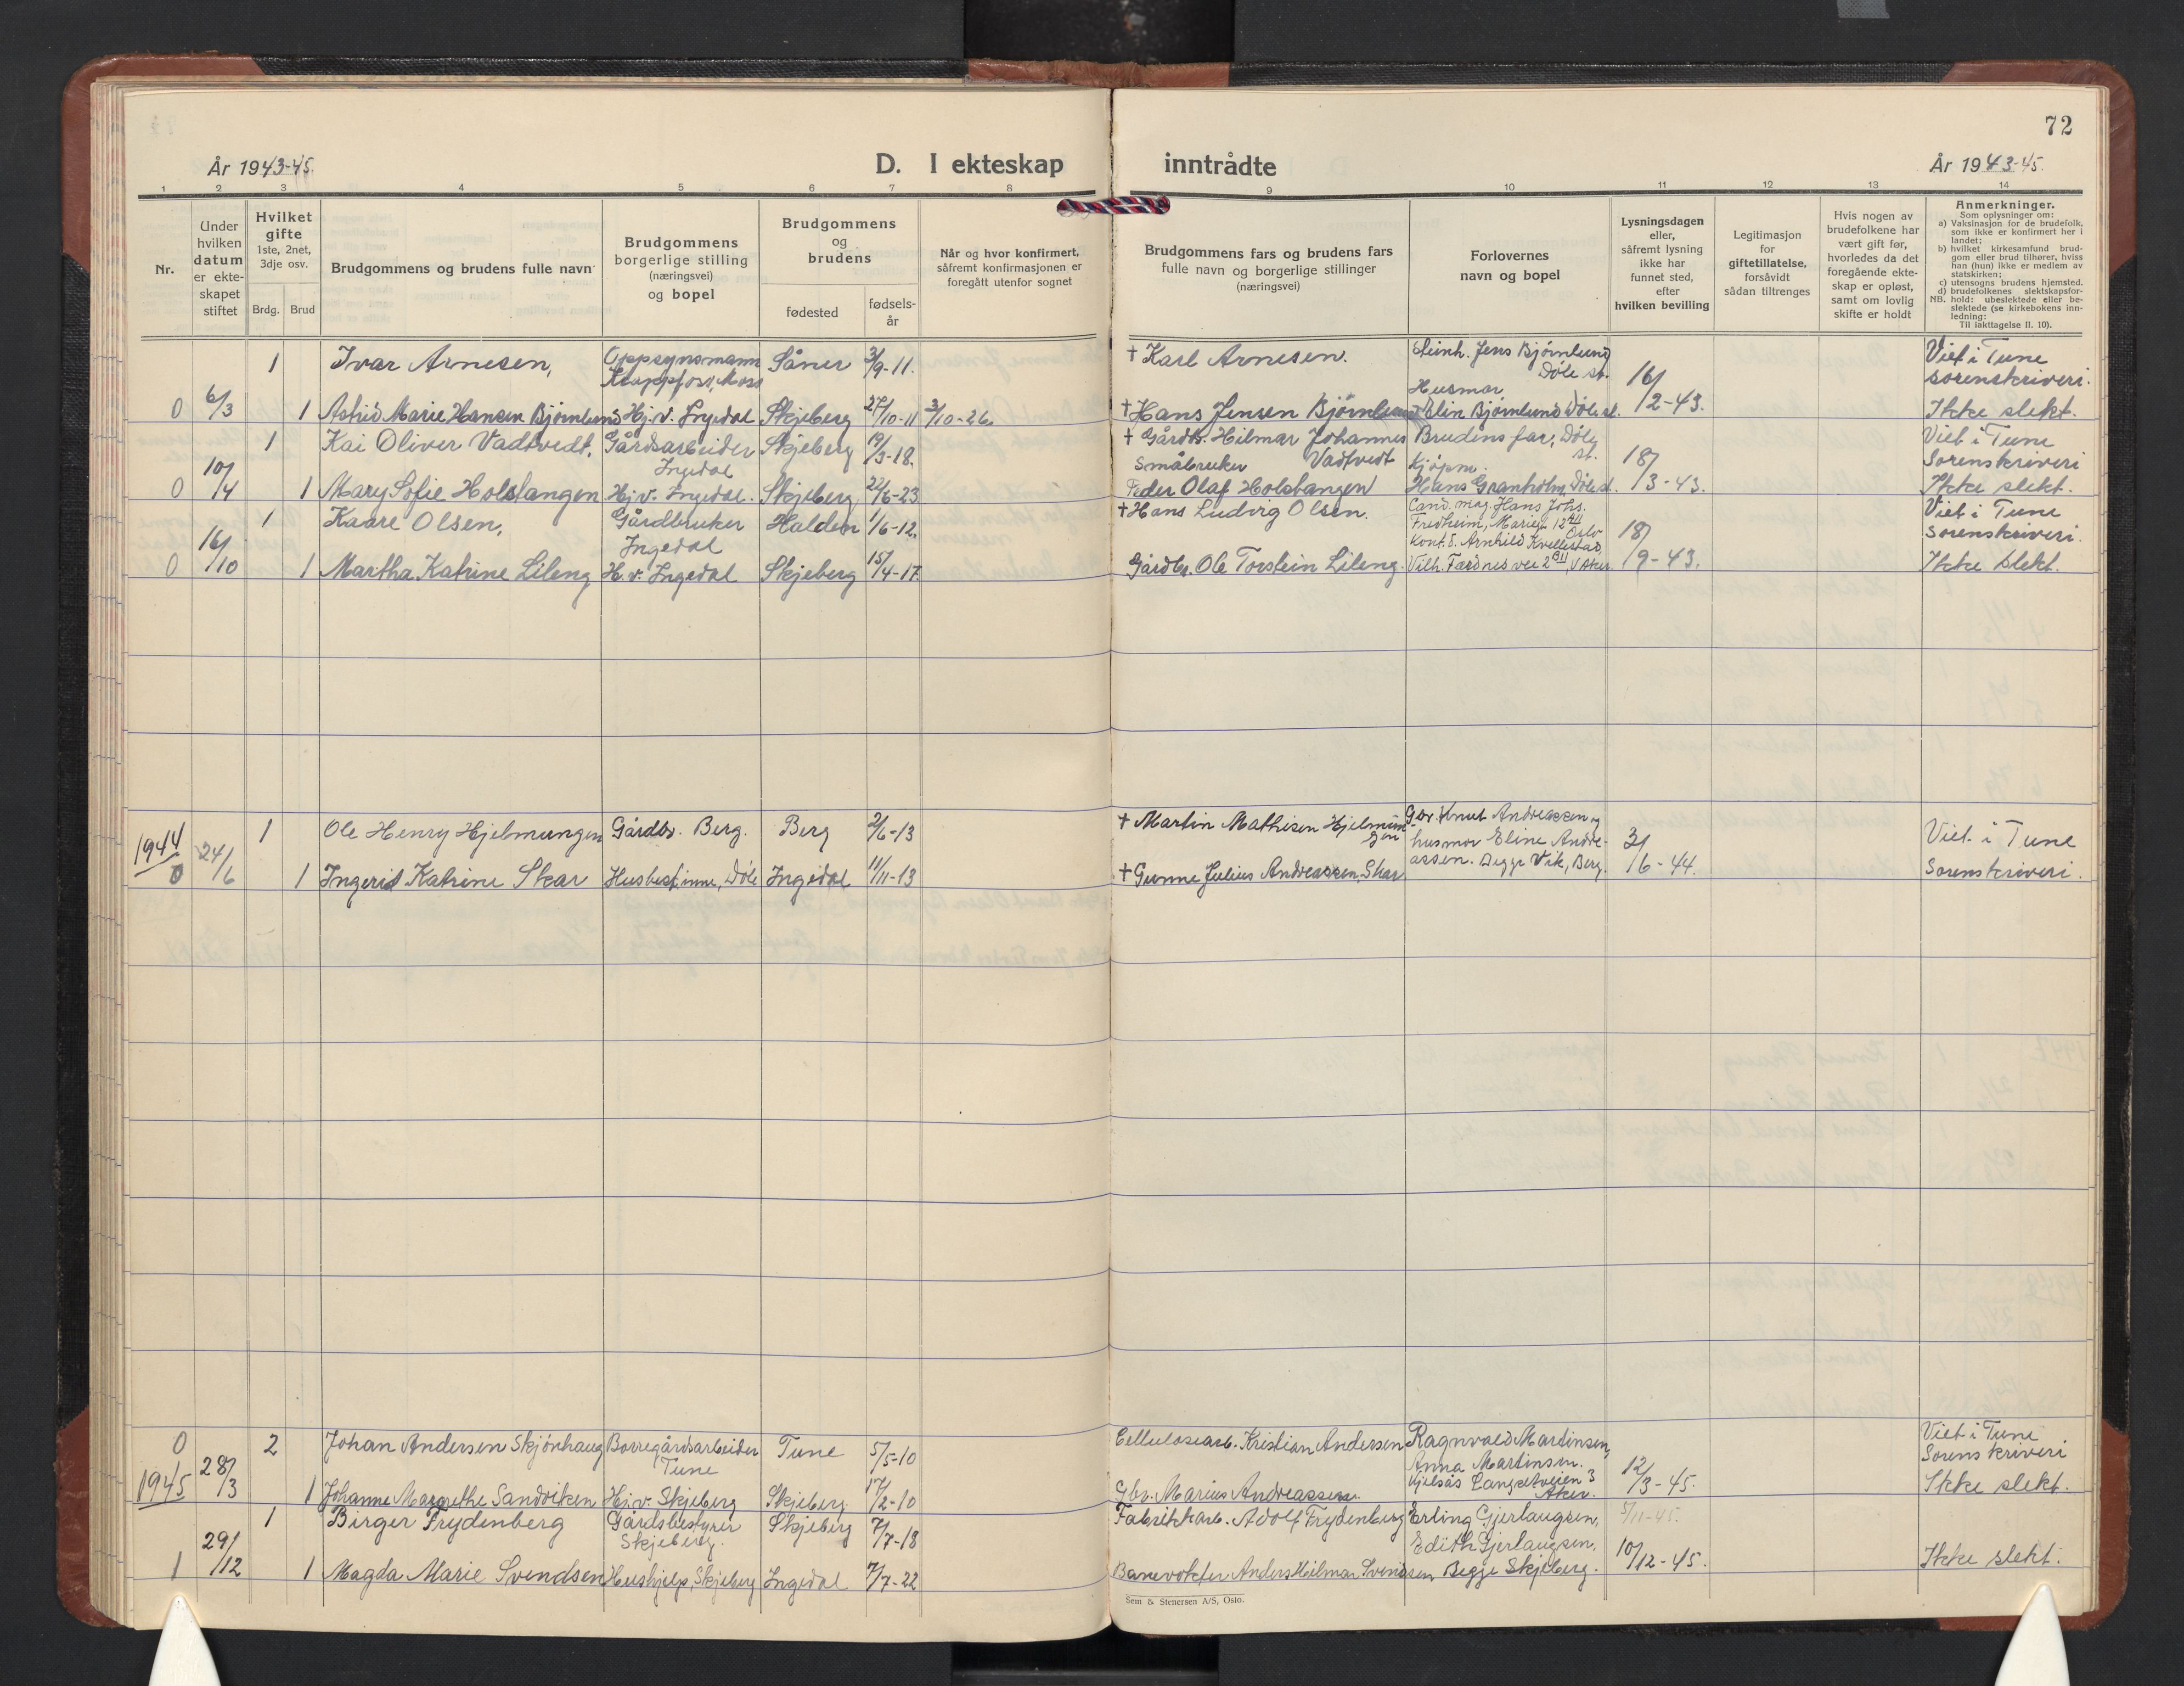 72
År 1943-45.
D. I ekteskap inntrådte
År 1943-45.
1 2 3 4 5 6 7 8 9 10 11 12 13 14
Nr.
Under
hvilken
datum
er ekte-
skapet
stiftet
Hvilket
gifte
1ste, 2net,
3dje osv.
Brdg. Brud
Brudgommens og brudens fulle navn
Brudgommens
borgerlige stilling
(næringsvei)
og bopel
Brudgommens
og
brudens
fødested
fødsels-
år
Når og hvor konfirmert,
såfremt konfirmasjonen er
foregått utenfor sognet
Brudgommens fars og brudens fars
fulle navn og borgerlige stillinger
(næringsvei)
Forlovernes
navn og bopel
Lysningsdagen
eller,
såfremt lysning
ikke har
funnet sted,
efter
hvilken bevilling
Legitimasjon
for
giftetillatelse,
forsåvidt
sådan tiltrenges
Hvis nogen av
brudefolkene har
vært gift før,
hvorledes da det
foregående ekte-
skap er opløst,
samt om lovlig
skifte er holdt
Anmerkninger.
Som oplysninger om:
a) Vaksinasjon for de brudefolk,
som ikke er konfirmert her i
landet;
b) hvilket kirkesamfund brud-
gom eller brud tilhører, hviss
han (hun) ikke er medlem av
statskirken;
c) utensogns brudens hjemsted.
d) brudefolkenes slektskapsfor-
NB. hold: ubeslektede eller be-
slektede (se kirkebokens inn-
ledning:
Til iakttagelse II. 10).
1 Ivar Arnesen, Oppsynsmann Såner 3/9-11. † Karl Arnesen. Jens Bjørnlund Viet i Tune
Krappfoss, Moss Døle st. 16/ sorenskriveri.
Husmor
0 6/3 1 Astrid Marie Hansen Bjørnlund Hj.v. Ingedal Skjeberg 27/10-11 3/10-26. † Hans Jensen Bjørnlund Elin Bjørnlund Døle st. 2-43. Ikke slekt.
1 Kai Oliver Vadtvedt, Gårdsarbeider Skjeberg 19/3-18. † Gårdb. Hilmar Johannes Brudens far, Døle Viet i Tune
Ingedal Småbruker Vadtvedt Kjøpm. st. 18/ Sorenskriveri
0 10/4 1 Mary Sofie Holstangen Hj.v. Ingedal. Skjeberg 22/6-23 Peder Olaf Holstangen Hans Granholm, Døle st. 3-43. Ikke slekt.
1 Kaare Olsen, Gårdbruker Halden 1/6-12. † Hans Ludvig Olsen. Cand. mag. Hans Johs. Viet i Tune
Ingedal Fredheim, Marieg. 12 Oslo 18/ sorenskriveri.
Kont.d. Arnhild Kvellestad
0 16/10 1 Martha Katrine Lileng H.v. Ingedal Skjeberg 15/4-17. Gårdbr. Ole Torstein Lileng. Vilh. Færdnes vei 2 BII, V Aker 9-43. Ikke slekt.
1 Ole Henry Hjelmungen Gårdbr. Berg. Berg 2/6-13 † Martin Mathisen Hjelmun- G.br. Knut Andreassen og Viet i Tune
gen husmor Eline Andre- 3/
1944 0 24/6 1 Ingerid Katrine Skar Husbestinne, Døle Ingedal 11/11-13 † Gunne Julius Andreassen Skar assen. Begge Vik, Berg. 6-44. Sorenskriveri.
0 2 Johan Andersen Skjønhaug Borregårdsarbeider Tune 5/5-10 Cellulosearb. Kristian Andersen Ragnvald Martinsen, Viet i Tune
Tune Anna Martinsen. Sorenskriveri
1945 28/3 1 Johanne Margrethe Sandviken Hj.v. Skjeberg Skjeberg. 17/2-10 Gbr. Marius Andreassen. Kjelsås Langsetveien 3 Aker. 12/3-45. Ikke slekt.
1 Birger Frydenberg Gårdsbestyrer Skjeberg 7/7-18 Fabrikkarb. Adolf Frydenberg Erling Gjerlaugsen, 5/11-45.
Skjeberg. Edith Gjerlaugsen.
1 29/12 1 Magda Marie Svendsen Hushjelp, Skjeberg Ingedal 7/7-22 Banevokter Anders Hilmar Svendsen Begge Skjeberg. 10/12-45. Ikke slekt.
Sem & Stenersen A/S, Oslo.